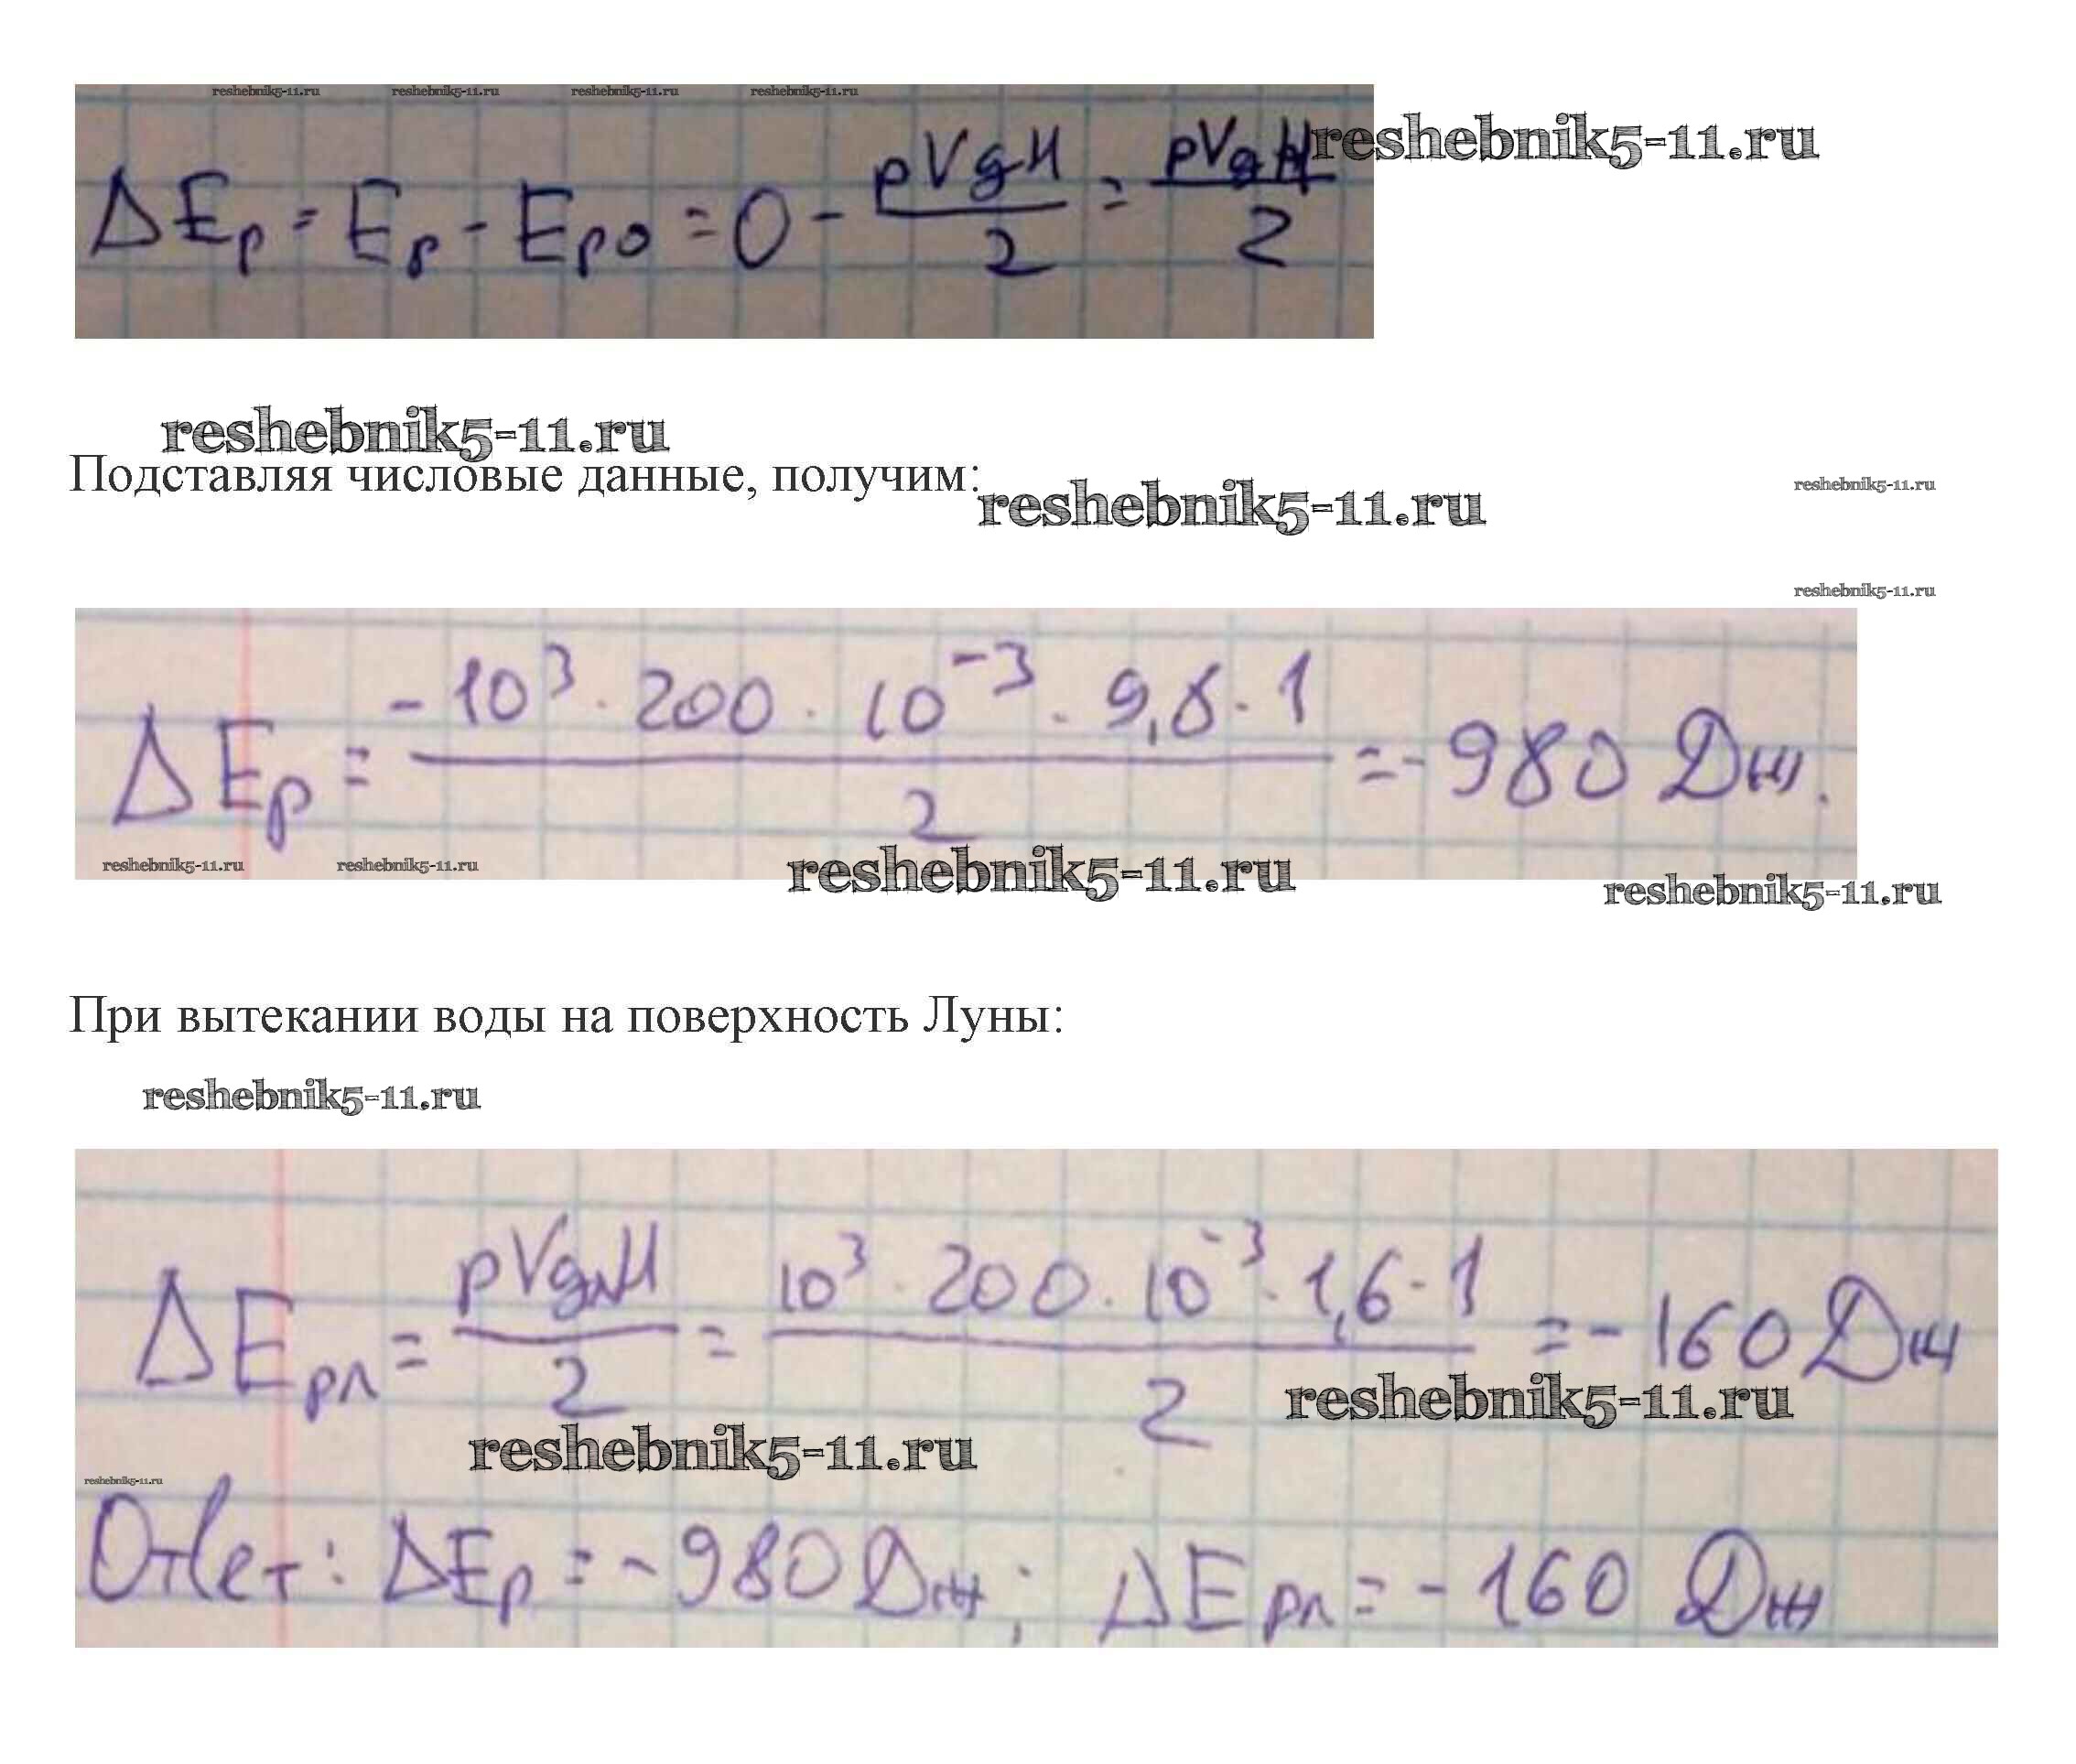 reshebnik5-11.ru reshebnik5-11.ru reshebnik5-11.ru reshebnik5-11.ru
reshebnik5-11.ru
ΔEp = Ep - Ep0 = 0 - pVgH/2 = pVgH/2
reshebnik5-11.ru
Подставляя числовые данные, получим:
reshebnik5-11.ru
reshebnik5-11.ru
reshebnik5-11.ru
ΔEp = -10³ · 200 · 10⁻³ · 9,8 · 1 / 2 = -980 Дж.
reshebnik5-11.ru reshebnik5-11.ru reshebnik5-11.ru
reshebnik5-11.ru
При вытекании воды на поверхность Луны:
reshebnik5-11.ru
ΔEpл = pVgлH/2 = 10³ · 200 · 10⁻³ · 1,6 · 1 / 2 = -160 Дж
reshebnik5-11.ru
reshebnik5-11.ru
reshebnik5-11.ru
Ответ: ΔEp = -980 Дж; ΔEpл = -160 Дж